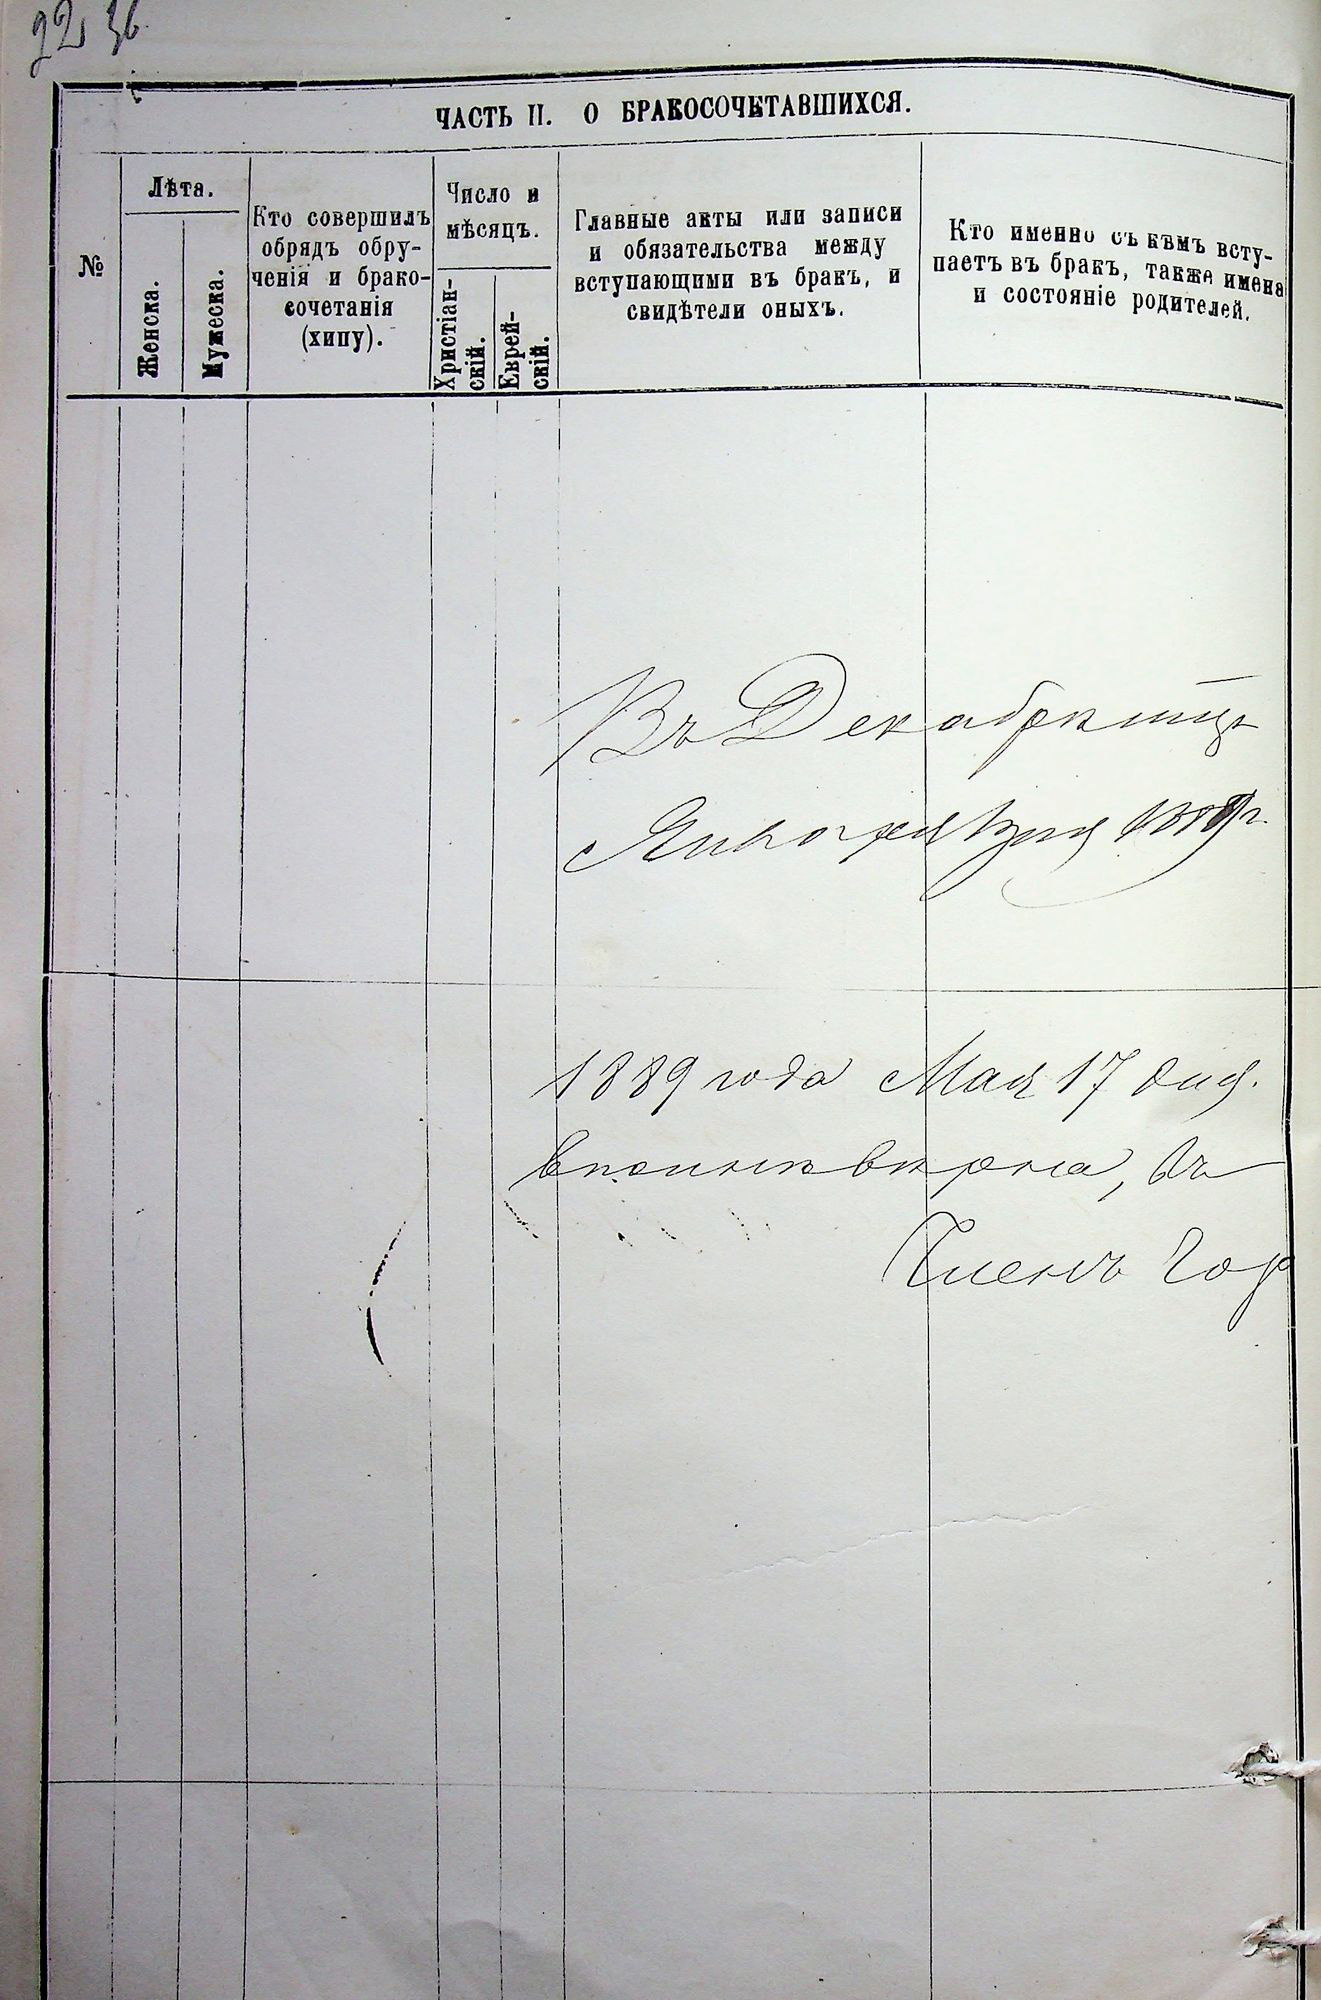 22 36
ЧАСТЬ II. О БРАКОСОЧЕТАВШИХСЯ.
№
Лѣта.
Женска.
Мужеска.
Кто совершилъ
обрядъ обру-
ченія и брако-
сочетанія
(хипу).
Число и
мѣсяцъ.
Христіан-
скій.
Еврей-
скій.
Главные акты или записи
и обязательства между
вступающими въ бракъ, и
свидѣтели оныхъ.
Кто именно съ кѣмъ всту-
паетъ въ бракъ, также имена
и состояніе родителей.
Въ Декабрѣ мцѣ
1889 года Мая 17 дня.
вѣрна, въ
Членъ Гор